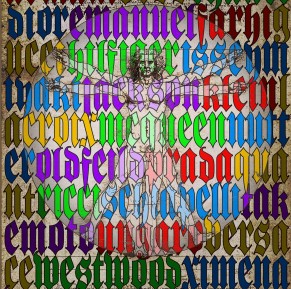 dioremanuelfarhig
uccihilfigerisseym
iyakijacksonkleinl
acroixmcqueennutt
eroldfieldpradaqua
ntriccischiaparellitak
emotoungaroversa
cewestwoodximena